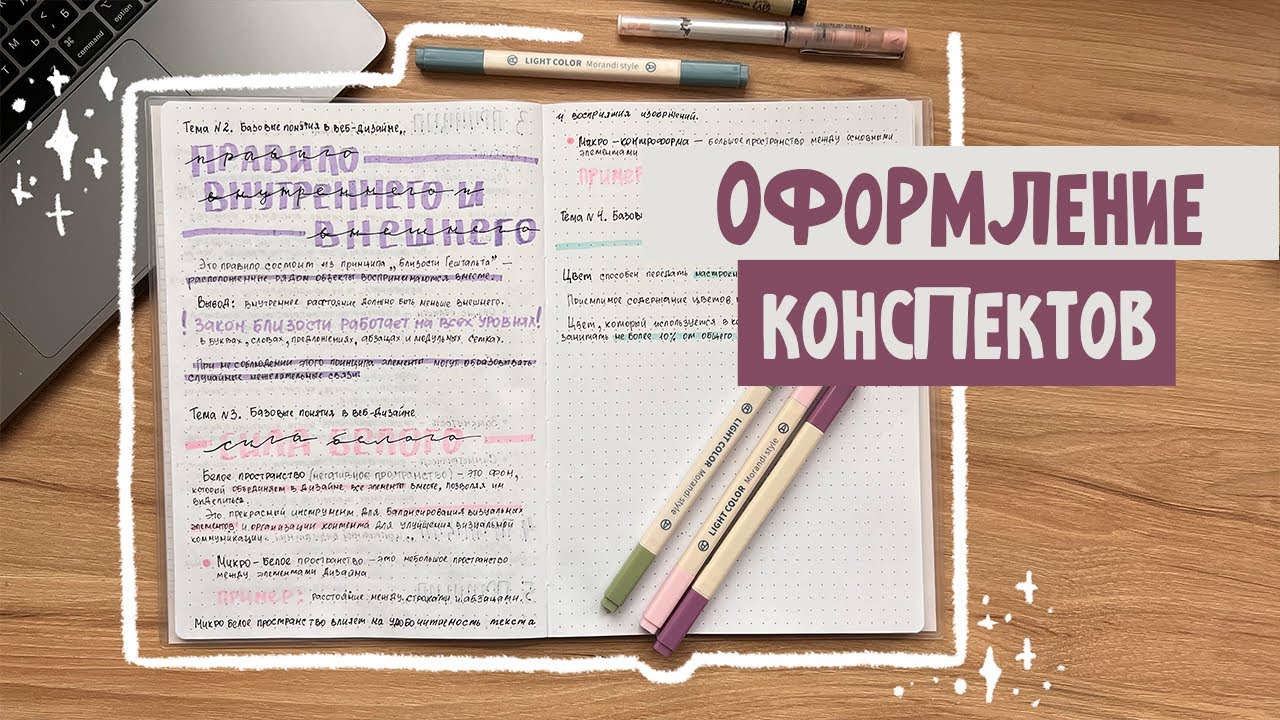 command
option
LIGHT COLOR Morandi style
Тема №2. Базовые понятия в веб-дизайне,
ПРАВИЛО
ВНУТРЕННЕГО И
ВНЕШНЕГО
Это правило состоит из принципа „близости Гештальта" –
расположенные рядом объекты воспринимаются вместе.
Вывод: внутреннее расстояние должно быть меньше внешнего.
! Закон близости работает на всех уровнях!
в буквах, словах, предложениях, абзацах и модульных сетках.
При не соблюдении этого принципа элементы могут образовывать
случайные нежелательные связи.
Тема №3. Базовые понятия в веб-дизайне
СИЛА БЕЛОГО
Белое пространство (негативное пространство) – это фон,
который объединяем в дизайне все элементы вместе, позволяя им
выделиться.
Это прекрасный инструмент для балансирования визуальных
элементов и организации контента для улучшения визуальной
коммуникации.
Микро-белое пространство – это небольшое пространство
между элементами дизайна.
ПРИМЕР: расстояние между строками и абзацами.
Микро белое пространство влияет на удобочитаемость текста
и восприятия изображений.
Макро-контрформа – большое пространство между основными
элементами
ПРИМЕР
Тема №4. Базовы
Цвет способен передать настроен
Приемлимое содержание цветов,
Цвет, который используется в к
занимать не более 10% от общего
ОФОРМЛЕНИЕ
КОНСПЕКТОВ
LIGHT COLOR Morandi style
LIGHT COLOR Morandi style